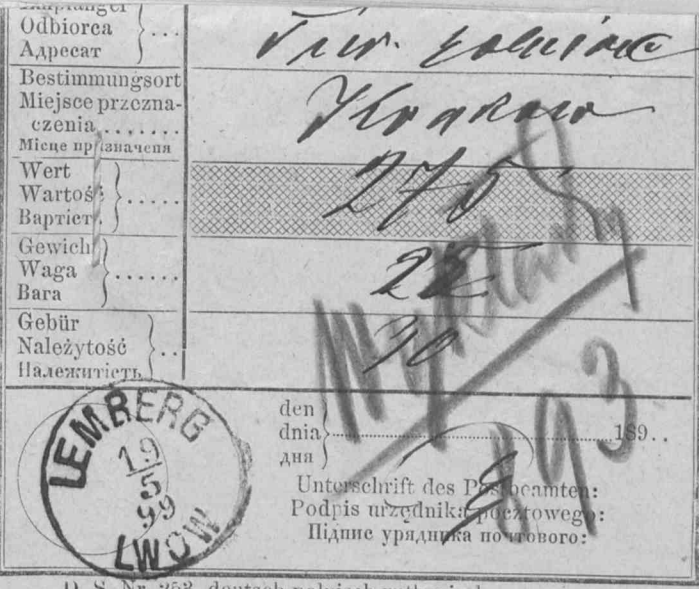 Odbiorca
Адресат
Bestimmungsort
Miejsce przezna-
czenia.......
Krakow
Місце призначеня
Wert
Wartość
Вартість
275
Gewicht
Waga
Вага
22
Gebür
Należytość
Належитість
30
den
dnia 189..
дня
193
LEMBERG
19
5
99
LWOW
Unterschrift des Postbeamten:
Podpis urzędnika pocztowego:
Підпис урядника почтового: